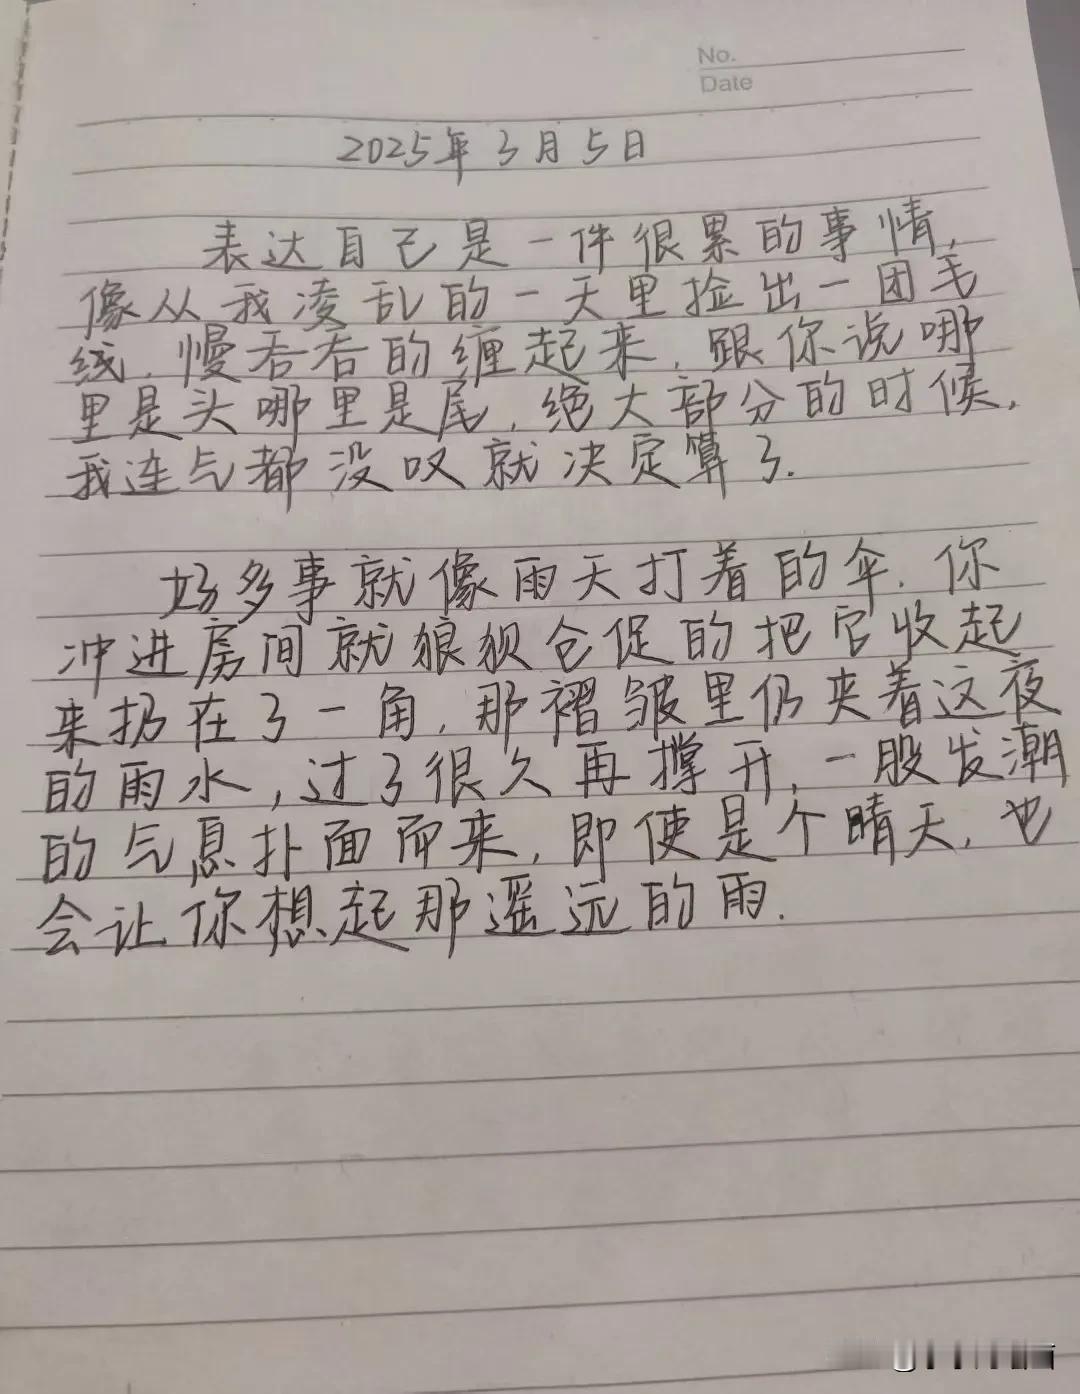 No.
Date
2025年3月5日
表达自己是一件很累的事情,
像从我凌乱的一天里捡出一团毛
线.慢吞吞的缠起来.跟你说哪
里是头哪里是尾.绝大部分的时候.
我连气都没叹就决定算了.
好多事就像雨天打着的伞.你
冲进房间就狼狈仓促的把它收起
来扔在了一角.那褶皱里仍夹着这夜
的雨水,过了很久再撑开.一股发潮
的气息扑面而来,即使是个晴天.也
会让你想起那遥远的雨.